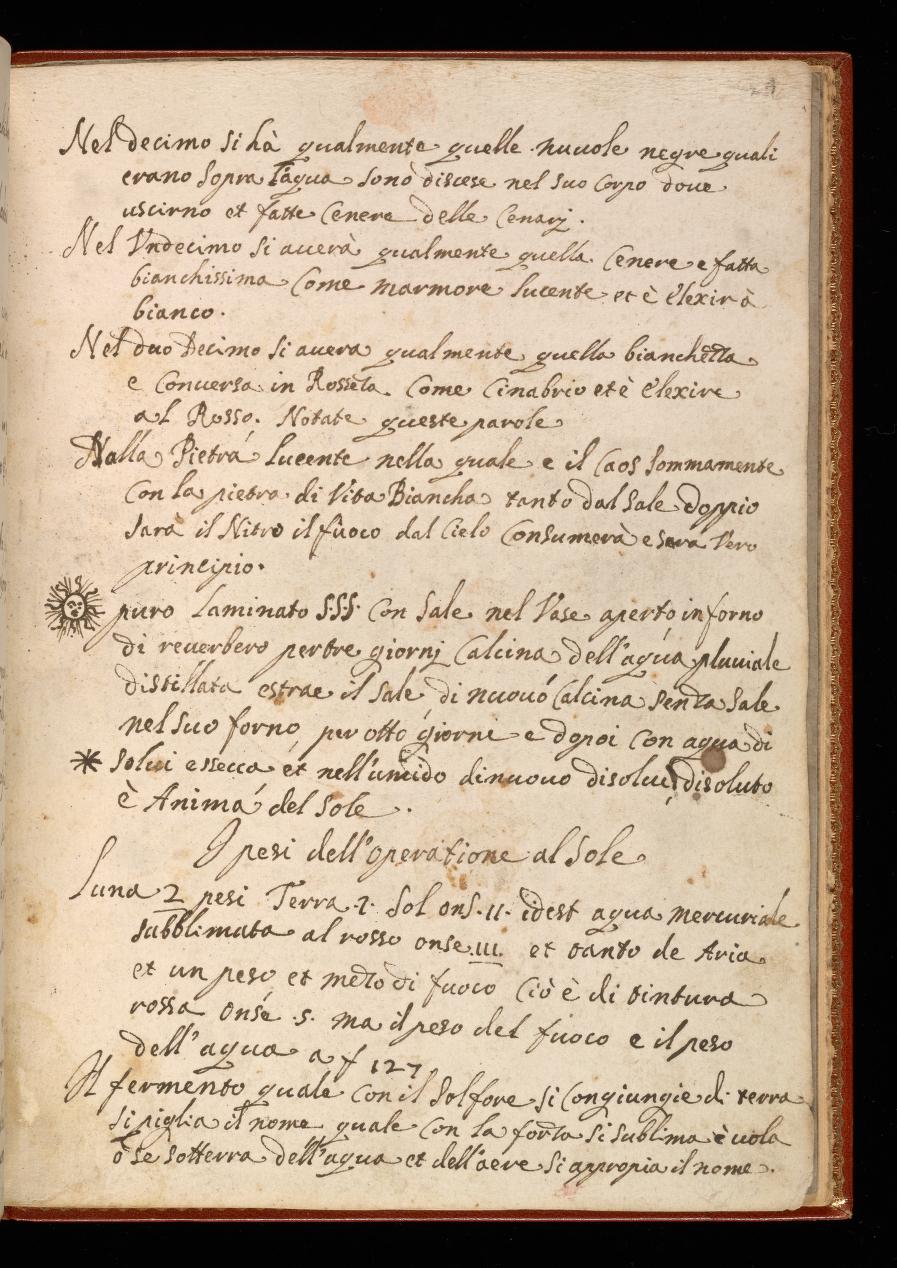 Nel decimo si hà qualmente quelle nuuole negre quali
erano sopra l'aqua sono discese nel suo corpo doue
uscirno et fatte Cenere delle Cenarj.
Nel Vndecimo si auerà qualmente quella Cenere e fatta
bianchissima Come marmore lucente et è èlexir à
bianco.
Nel duo Decimo si auera qualmente quella bianchetta
e Conuersa in Rosseta Come Cinabrio et è èlexire
al Rosso. Notate queste parole
Nalla Pietra lucente nella quale e il Caos sommamente
Con la pietra di Vita Biancha tanto dal sale doppio
sarà il Nitro il fuoco dal Cielo Consumerà e sara Vero
principio.
puro laminato S.S.S. Con sale nel Vase aperto in forno
di reuerbero per tre giornj Calcina dell'aqua pluuiale
distillata estrae il sale di nuouo Calcina senza sale
nel suo forno per otto giorni e dopoi con aqua di
* solui e secca et nell'umido di nuouo disolue, disoluto
è Anima del sole.
I pesi dell'operatione al sole
Luna 2 pesi Terra .1. Sol ons. II. idest aqua mercuriale
subblimata al rosso onse .III. et tanto de Aria
et un peso et mezo di fuoco Ciò è di tintura
rossa onse .5. ma il peso del fuoco e il peso
dell'aqua a f 127
Il fermento quale con il solfore si Congiungie di terra
si piglia il nome quale Con la forza si sublima è uola
ò se sotterra dell'aqua et dell'aere si appropia il nome.